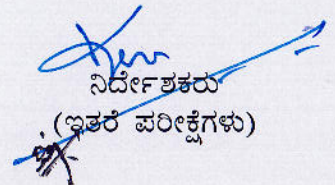 ನಿರ್ದೇಶಕರು
(ಇತರೆ ಪರೀಕ್ಷೆಗಳು)